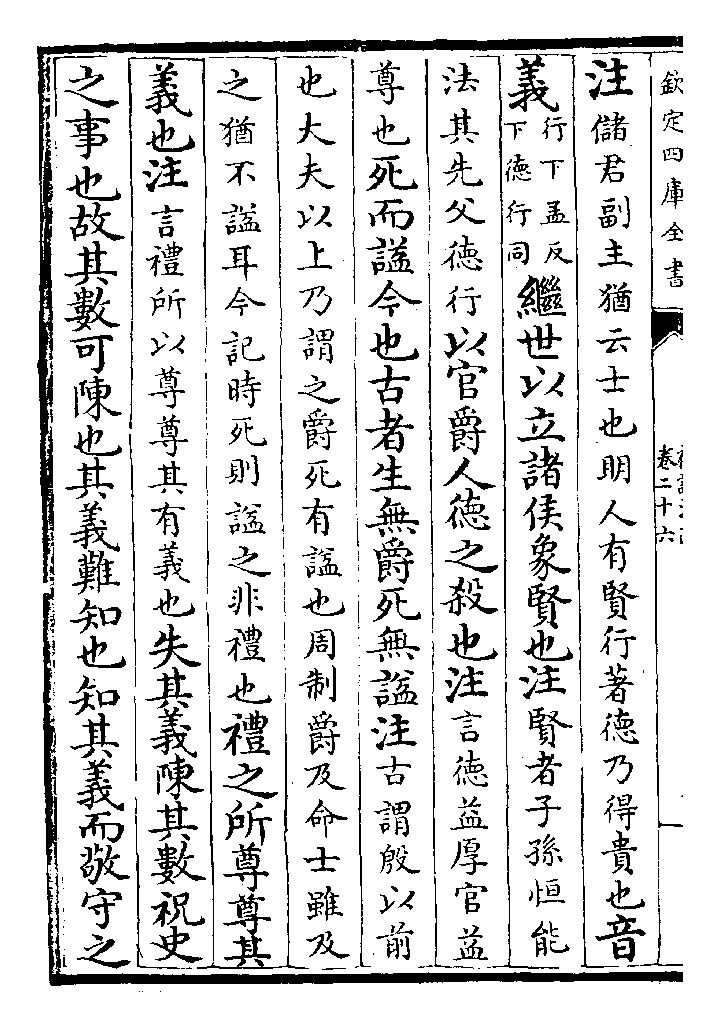 欽定四庫全書
卷二十六
注儲君副主猶云士也明人有賢行著德乃得貴也音
義行下孟反下德行同繼世以立諸侯象賢也注賢者子孫恒能
法其先父德行以官爵人德之殺也注言德益厚官益
尊也死而諡今也古者生無爵死無諡注古謂殷以前
也大夫以上乃謂之爵死有諡也周制爵及命士雖及
之猶不諡耳今記時死則諡之非禮也禮之所尊尊其
義也注言禮所以尊尊其有義也失其義陳其數祝史
之事也故其數可陳也其義難知也知其義而敬守之